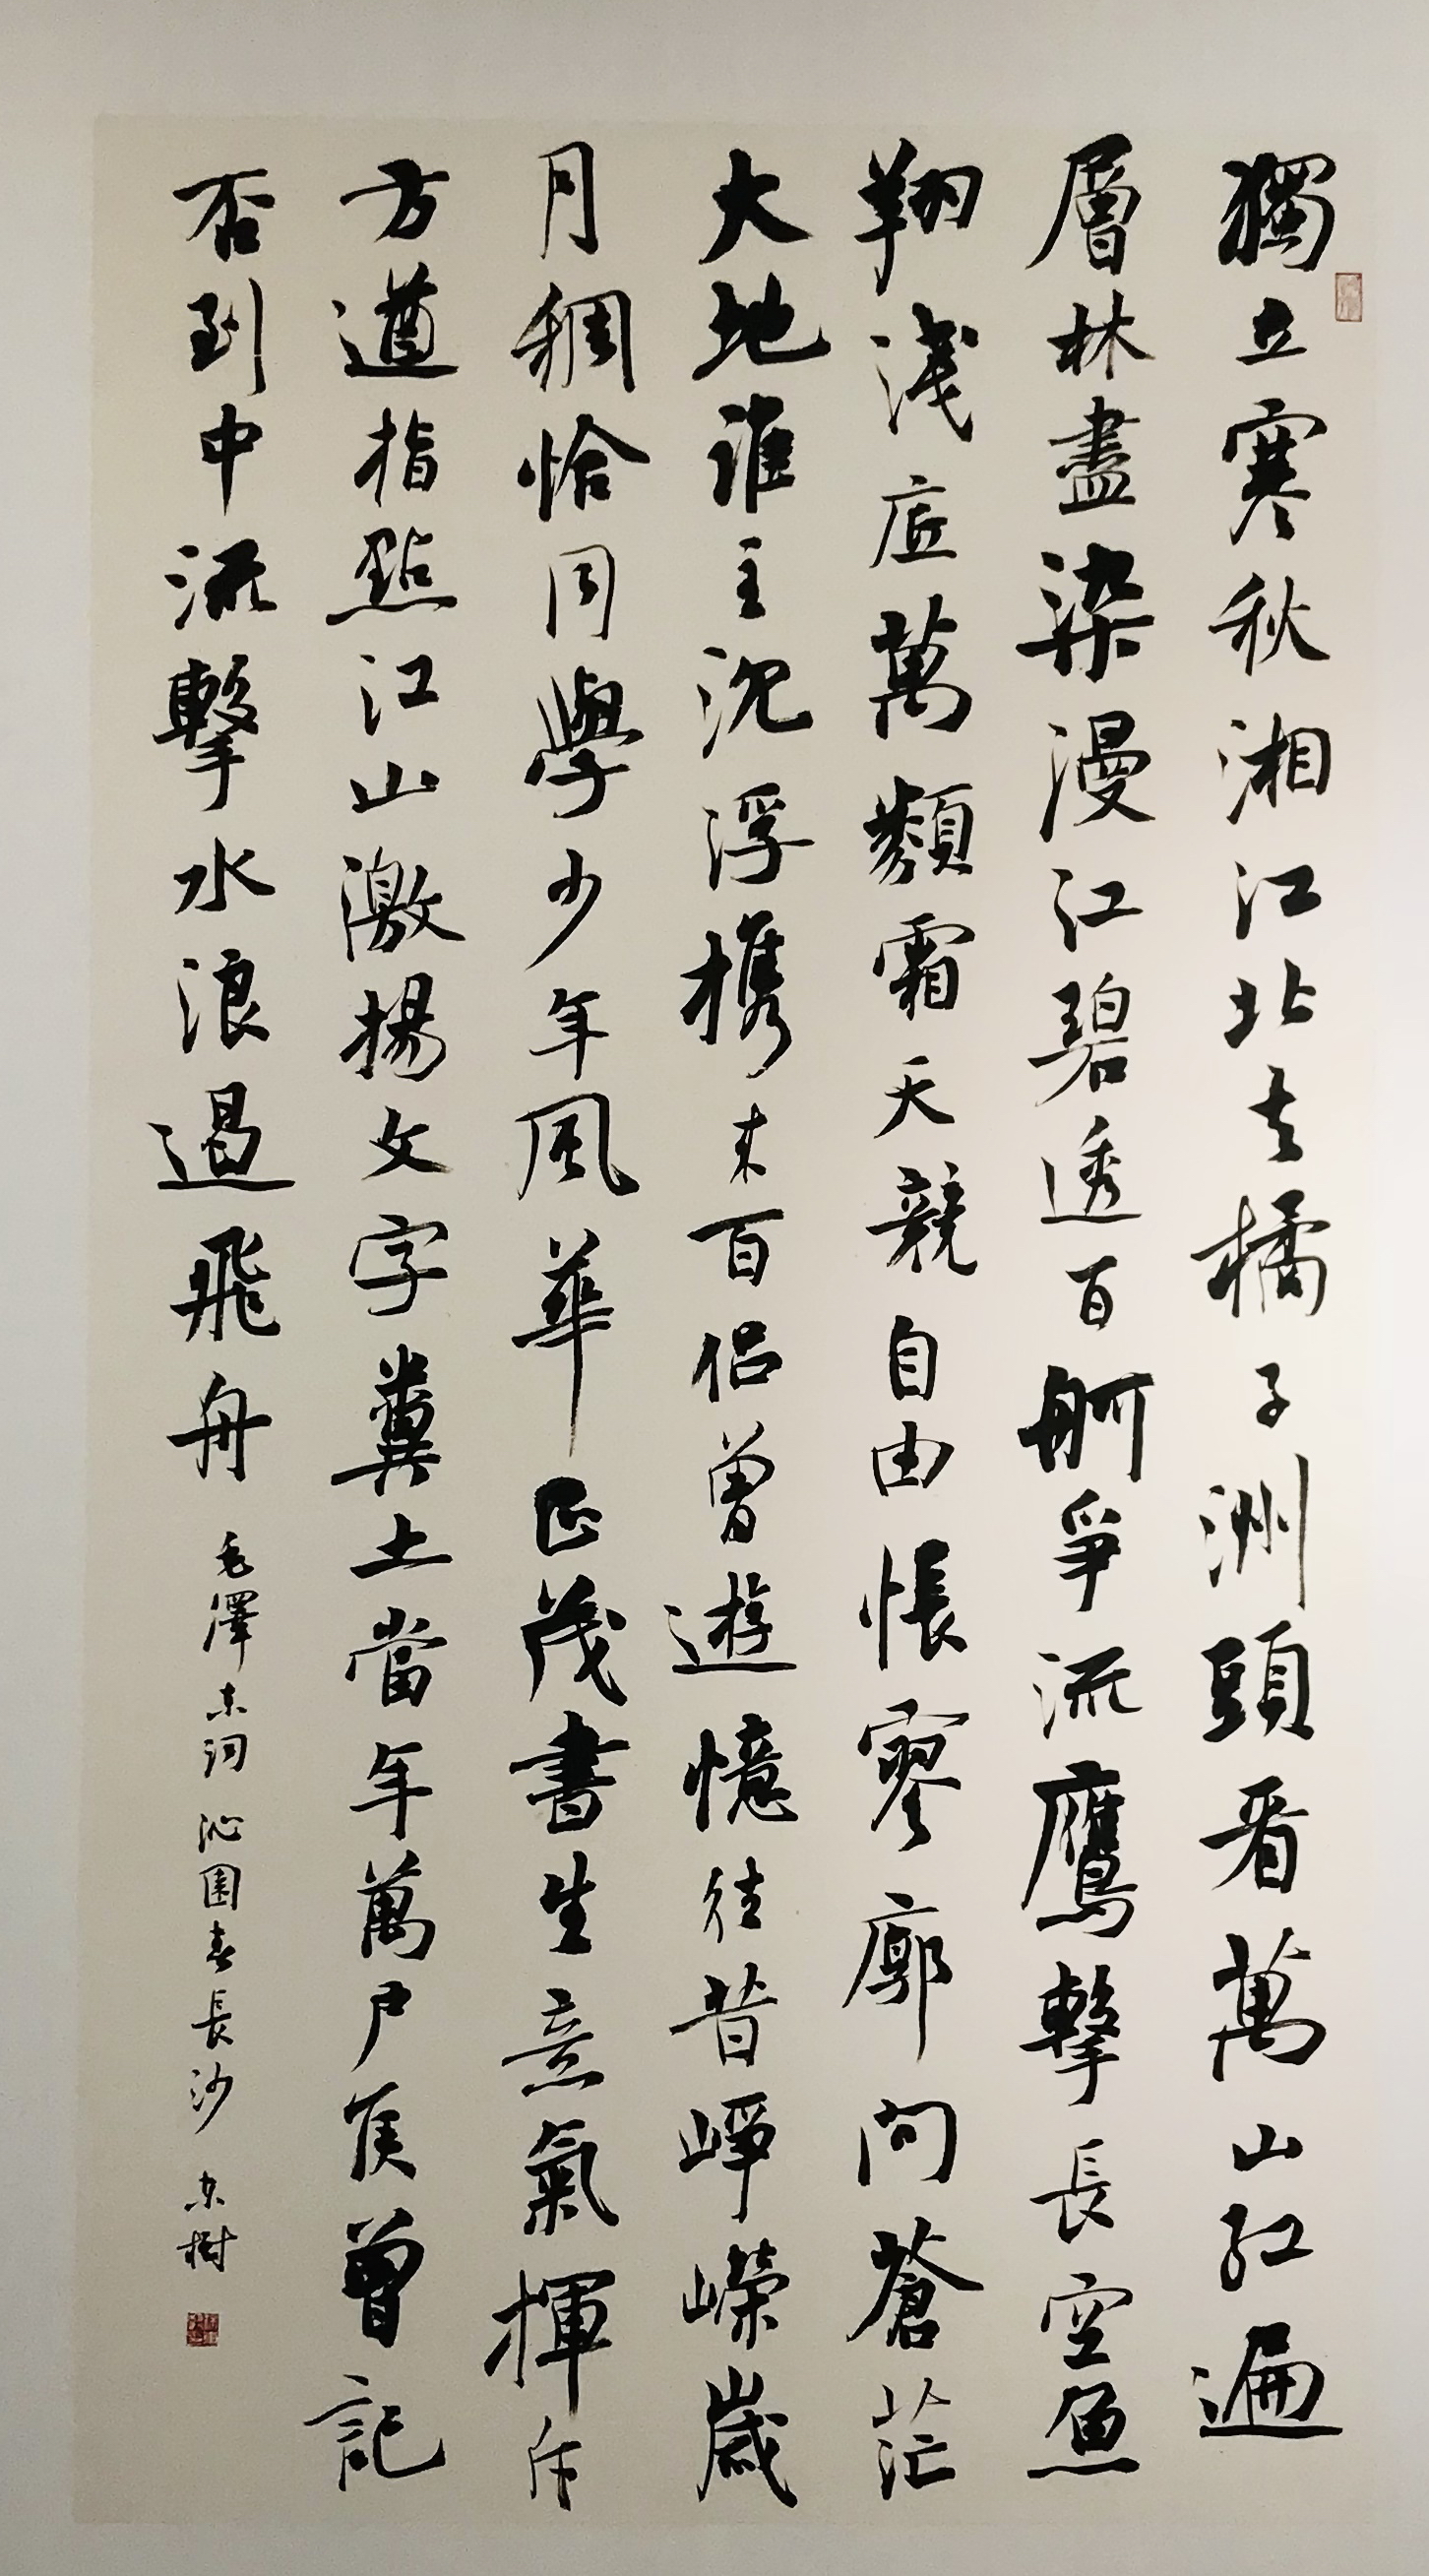 獨立寒秋湘江北去橘子洲頭看萬山紅遍
層林盡染漫江碧透百舸爭流鷹擊長空魚
翔淺底萬類霜天競自由悵寥廓問蒼茫
大地誰主沈浮携來百侶曾遊憶往昔崢嶸歲
月稠恰同學少年風華正茂書生意氣揮斥
方遒指點江山激揚文字糞土當年萬戶侯曾記
否到中流擊水浪遏飛舟 毛澤东詞 沁園春長沙 东樹